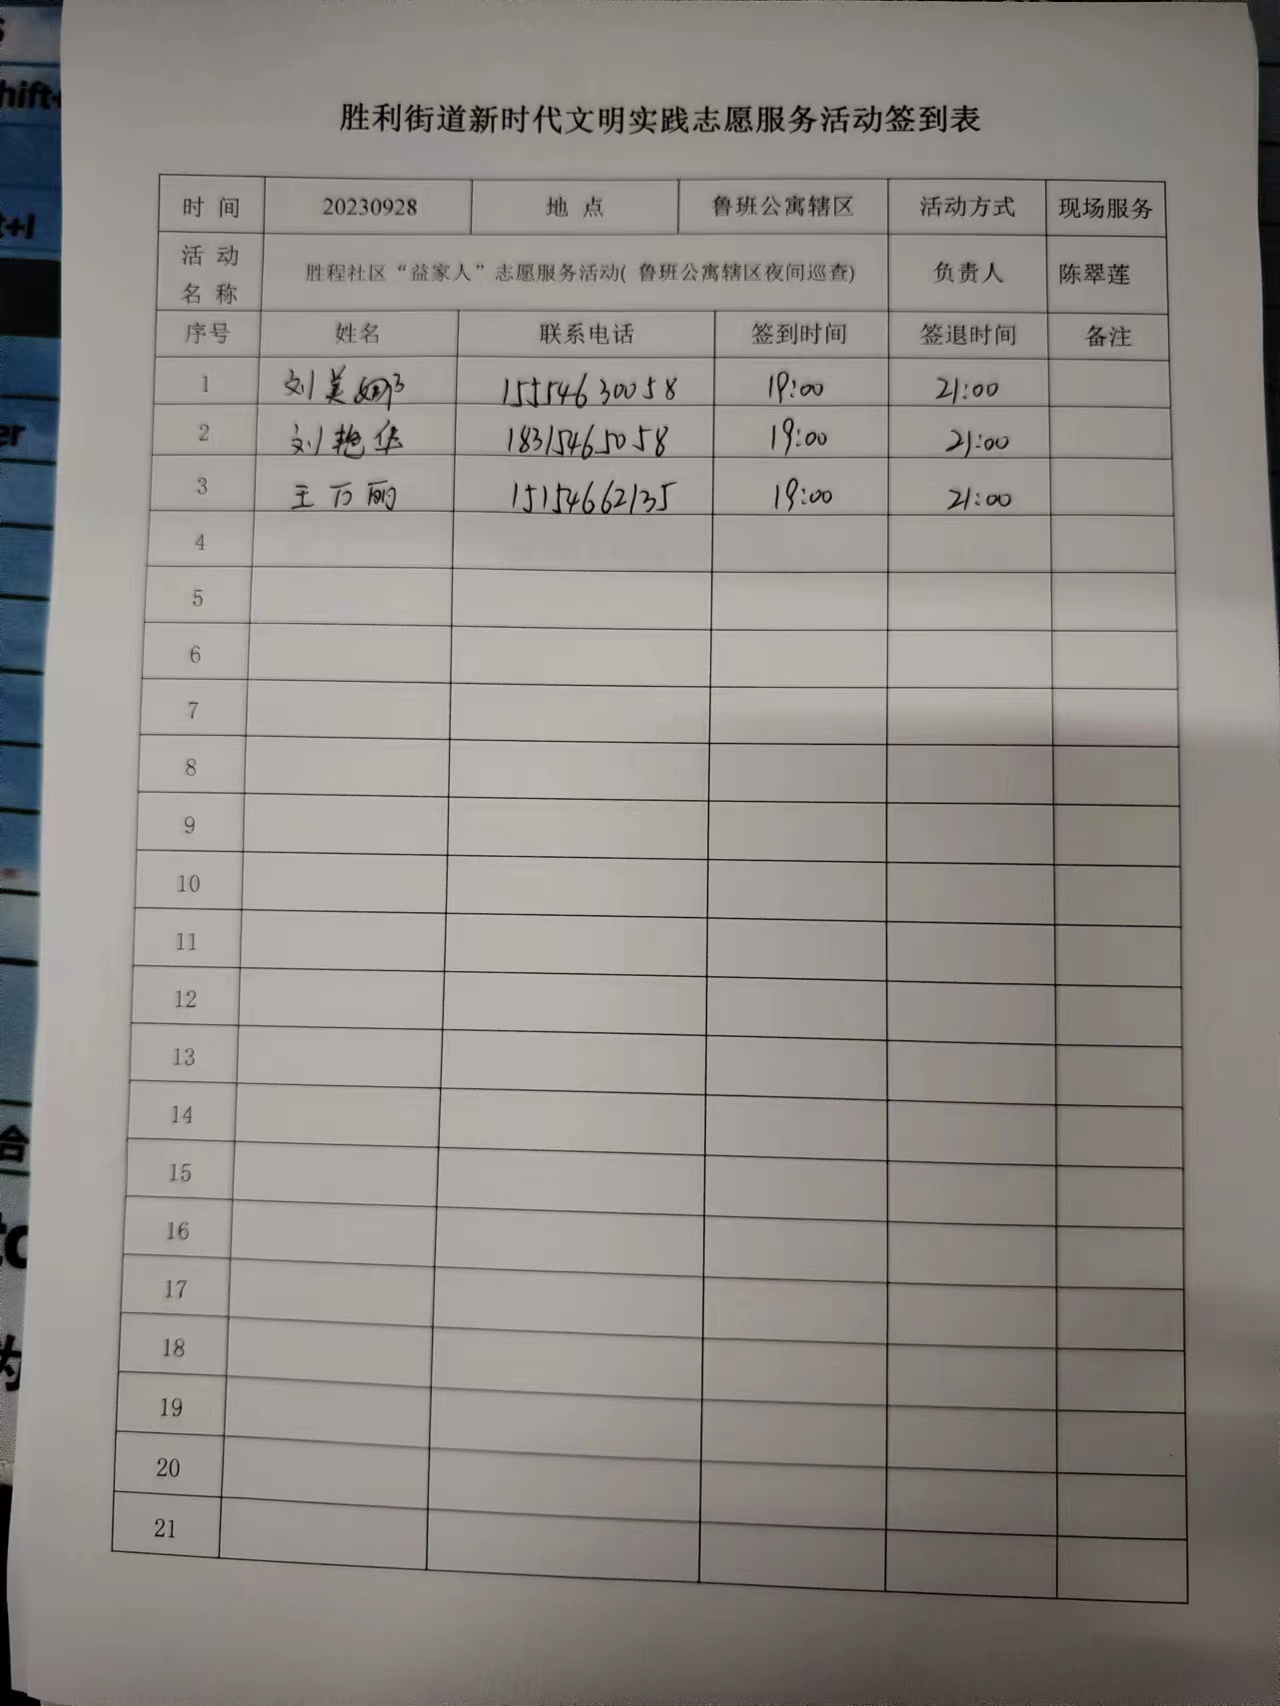 胜利街道新时代文明实践志愿服务活动签到表
时 间 20230928 地 点 鲁班公寓辖区 活动方式 现场服务
活 动 名 称 胜程社区“益家人”志愿服务活动( 鲁班公寓辖区夜间巡查) 负责人 陈翠莲
序号 姓名 联系电话 签到时间 签退时间 备注
1 刘美娜 15554630058 19:00 21:00
2 刘艳华 18315465058 19:00 21:00
3 王万丽 15154662135 19:00 21:00
4
5
6
7
8
9
10
11
12
13
14
15
16
17
18
19
20
21